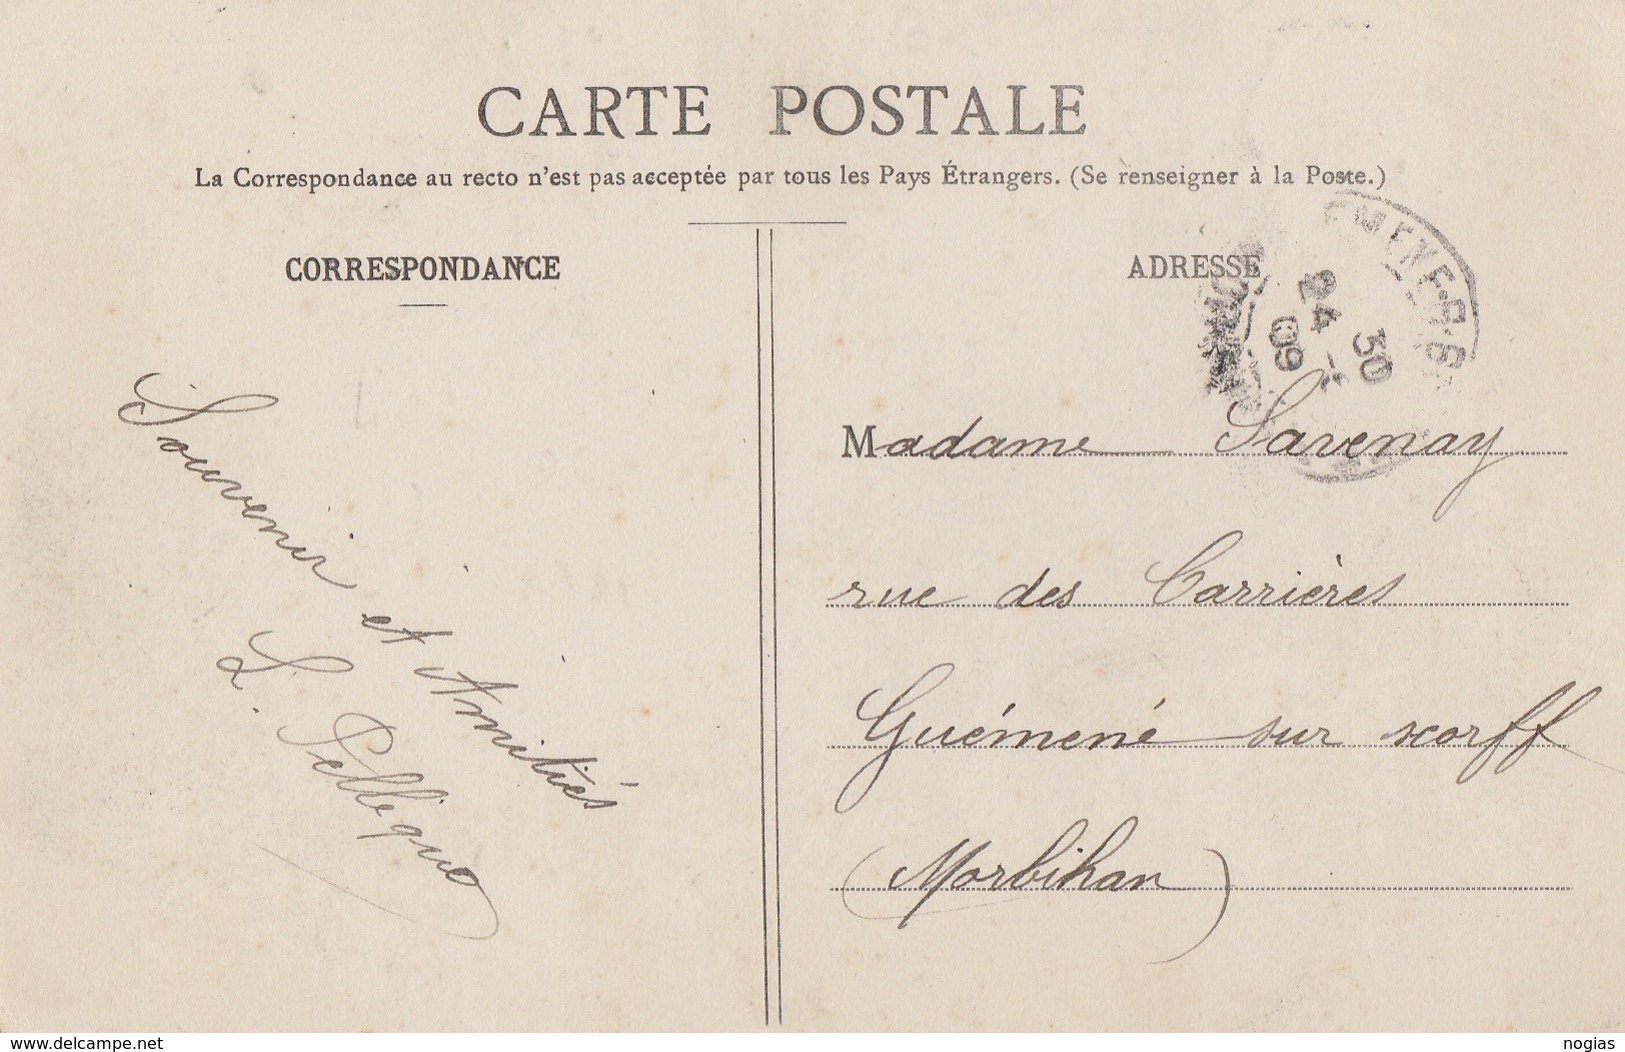 CARTE POSTALE
La Correspondance au recto n'est pas acceptée par tous les Pays Étrangers. (Se renseigner à la Poste.)
CORRESPONDANCE
Souvenir et Amitiés
L. Pellégou
ADRESSE
24
30
09
Madame Savenay
rue des Carrières
Guémené sur scorff
(Morbihan)
www.delcampe.net
nogias